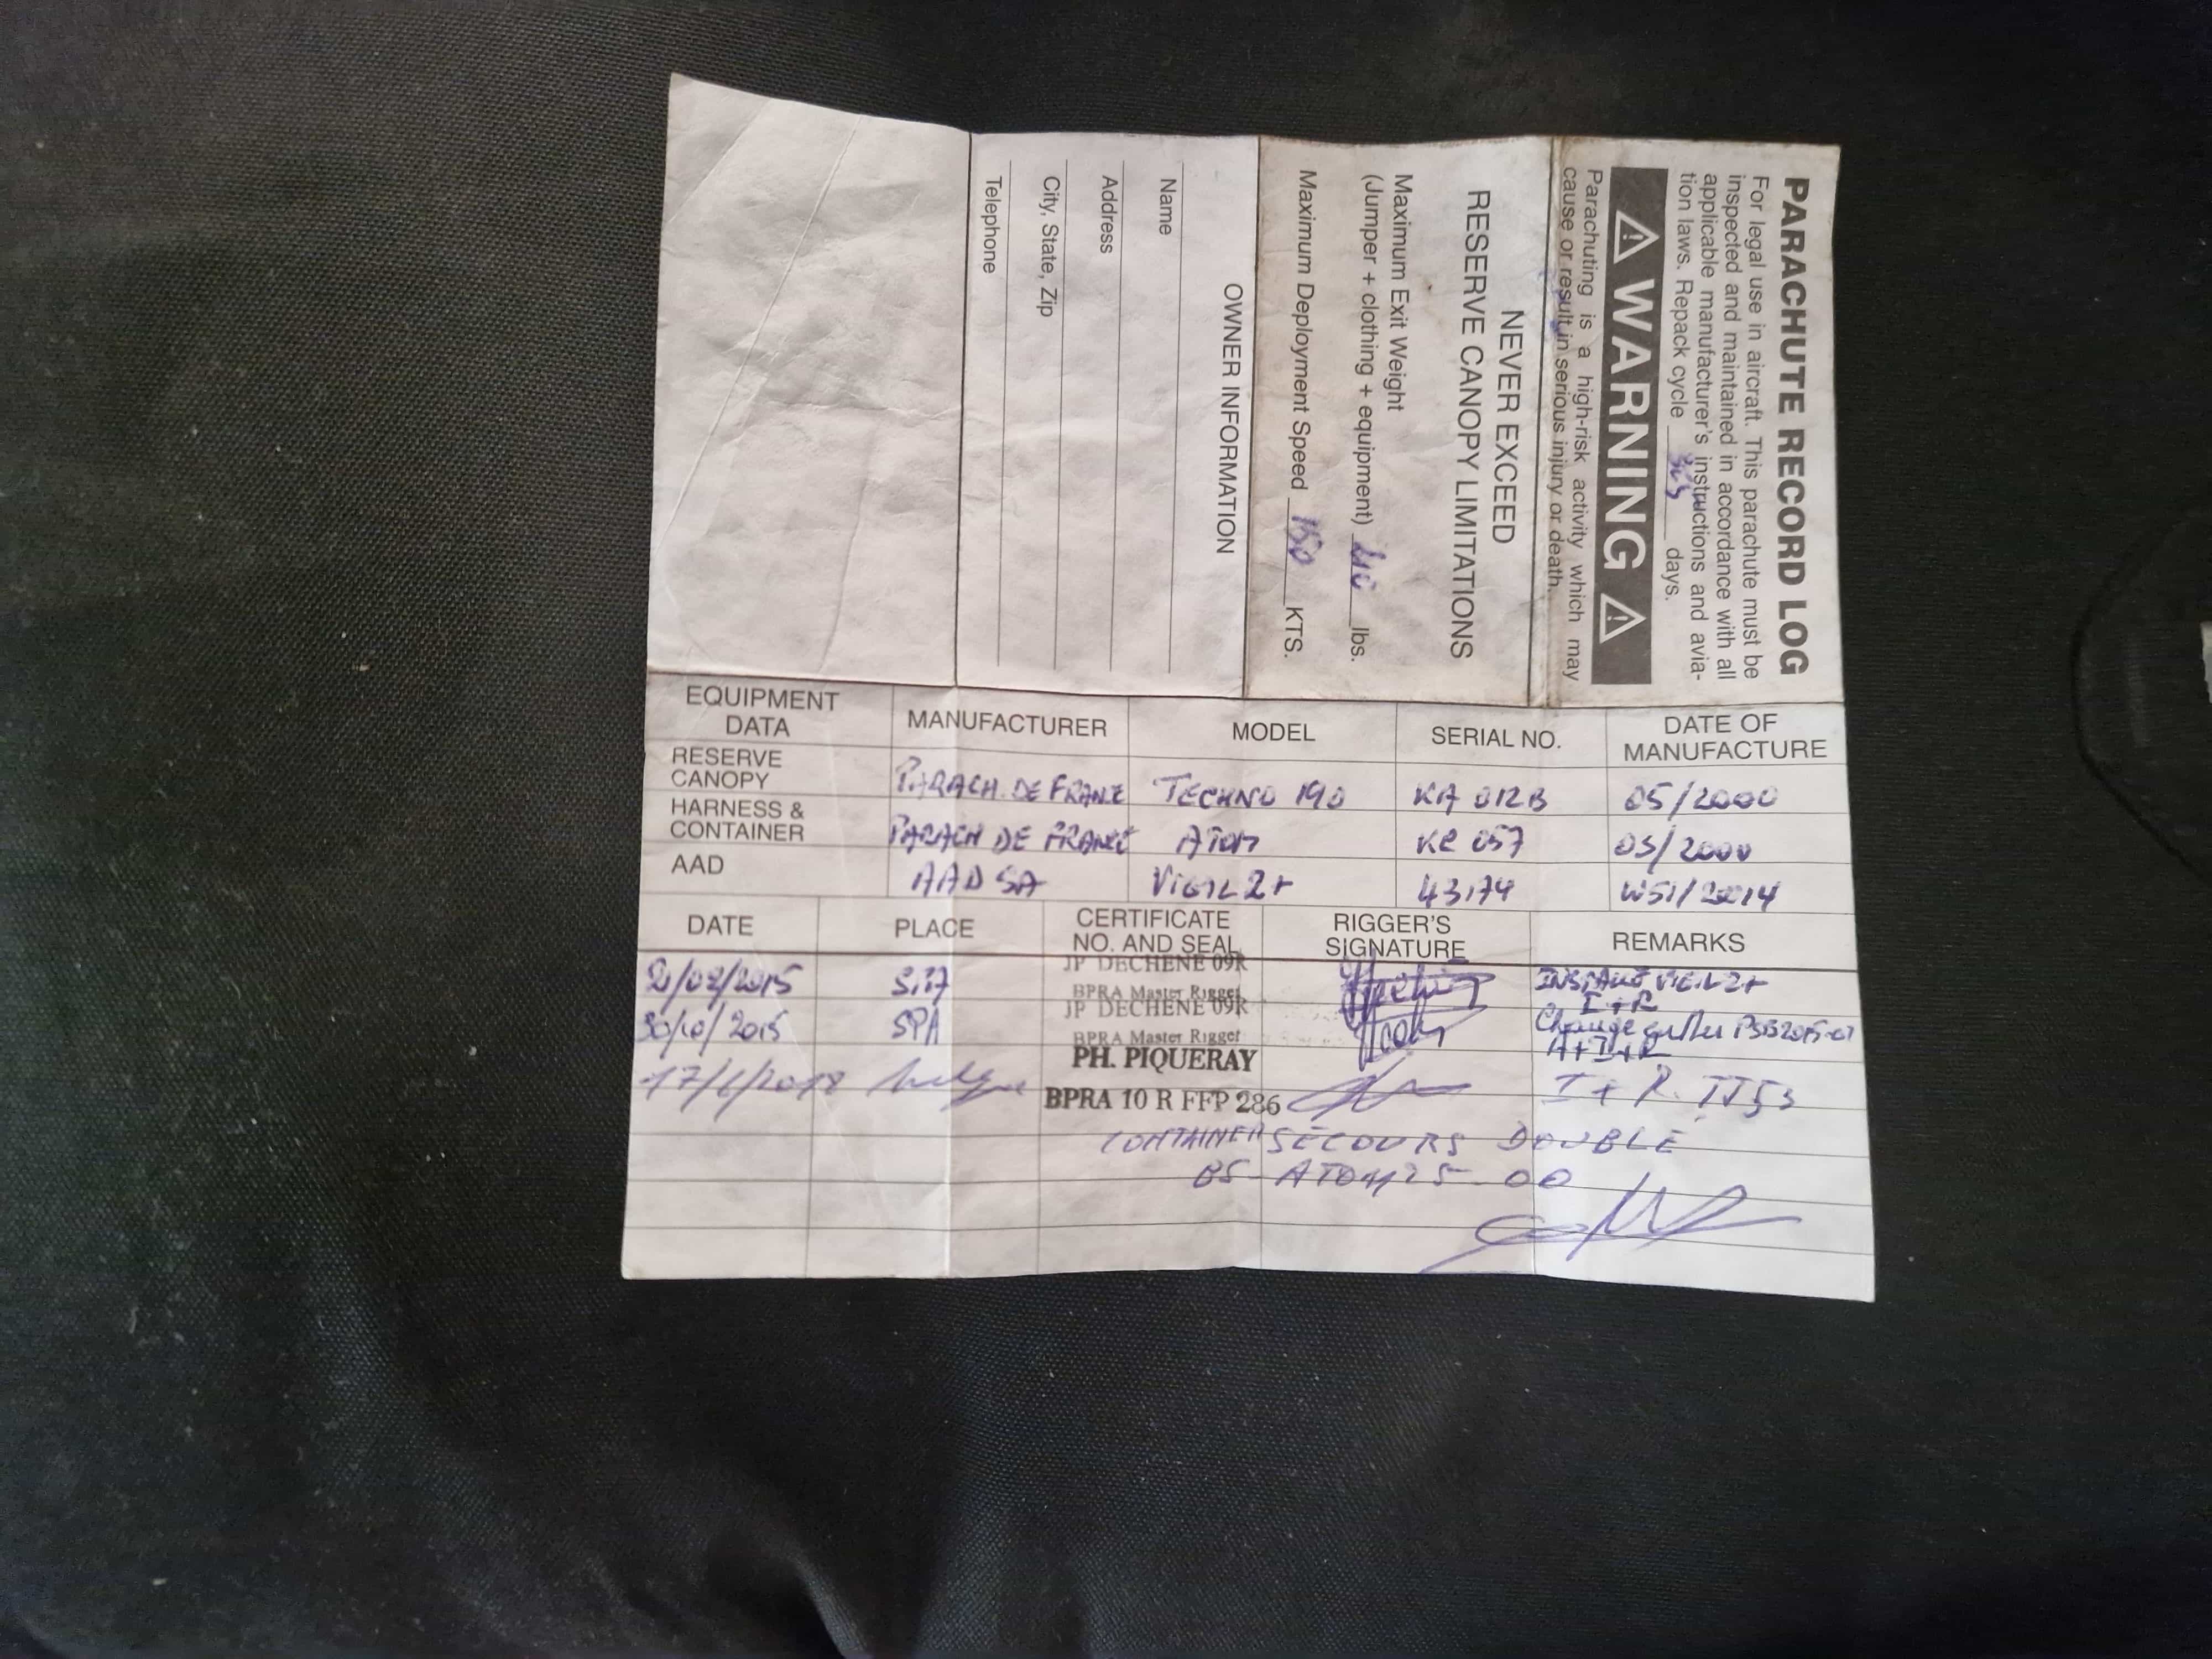 PARACHUTE RECORD LOG
For legal use in aircraft. This parachute must be
inspected and maintained in accordance with all
applicable manufacturer's instructions and avia-
tion laws. Repack cycle 365 days.
⚠ WARNING ⚠
Parachuting is a high-risk activity which may
cause or result in serious injury or death.
NEVER EXCEED
RESERVE CANOPY LIMITATIONS
Maximum Exit Weight
(Jumper + clothing + equipment) lbs.
Maximum Deployment Speed 150 KTS.
OWNER INFORMATION
Name
Address
City, State, Zip
Telephone
EQUIPMENT DATA MANUFACTURER MODEL SERIAL NO. DATE OF MANUFACTURE
RESERVE CANOPY PARACH. DE FRANCE TECHNO 190 KA 012B 05/2000
HARNESS & CONTAINER PARACH DE FRANCE ATOM 057 05/2000
AAD AAD SA VIGIL 2+ 43174 W51/2014
DATE PLACE CERTIFICATE NO. AND SEAL RIGGER'S SIGNATURE REMARKS
JP DECHENE 09R
/2015 SPA BPRA Master Rigger VIGIL 2+
I+R
JP DECHENE 09R
30/10/2015 SPA BPRA Master Rigger Change PSB2015-01
A+I+R
PH. PIQUERAY
17/6/2018 BPRA 10 R FFP 286 I + R.
CONTAINER SECOURS DOUBLE
BS-ATOM25-00